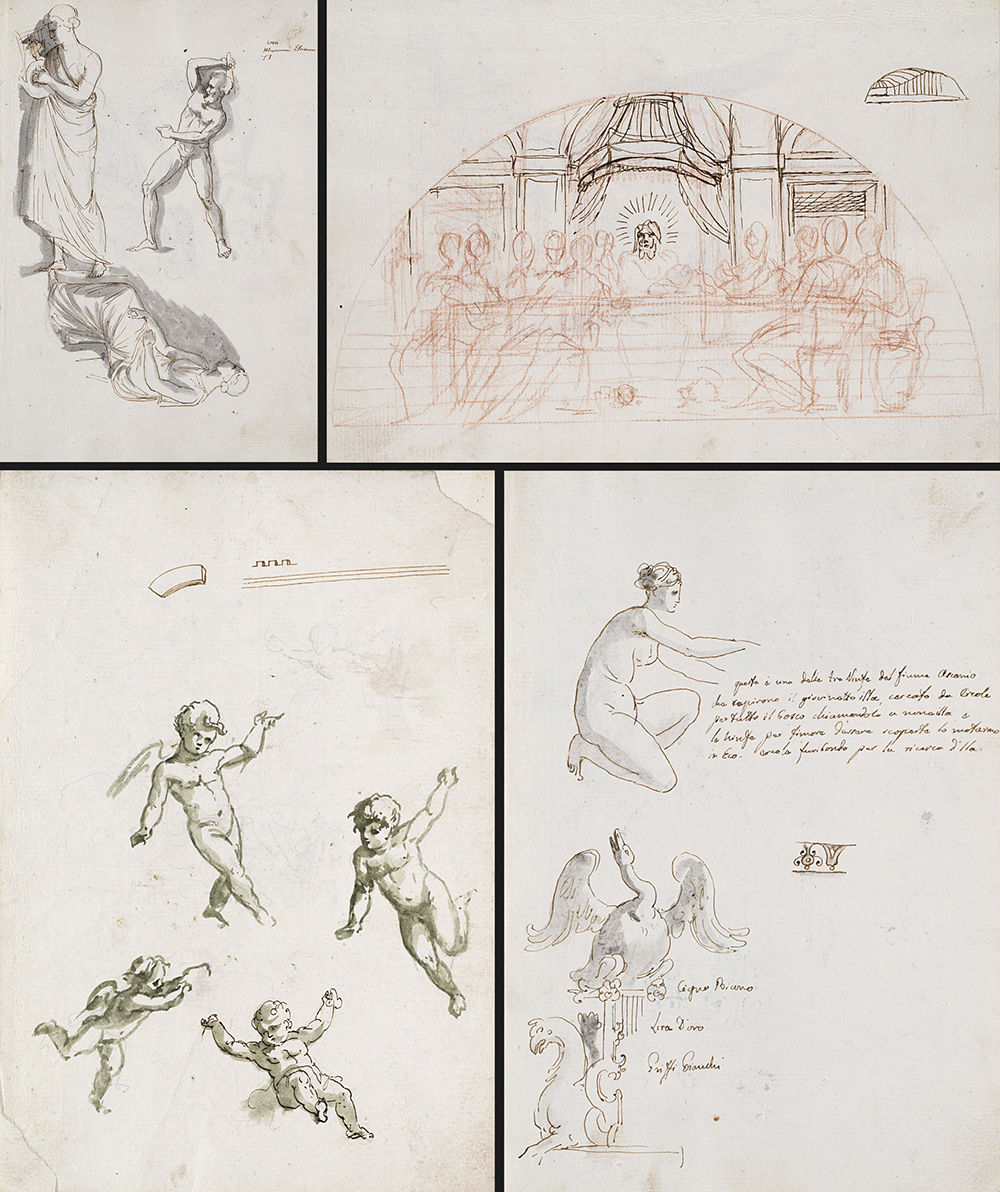 questa è una delle tre Ninfe del fiume Ascanio
che rapirono il giovinetto Illa, cercato da Ercole
per tutto il bosco chiamandolo a nome Illa e
le Ninfe per timore d'essere scoperte lo
in Eco. Ercole furibondo per la ricerca d'Illa.
Cigno Biano
Lira D'oro
Griffi Bianchi